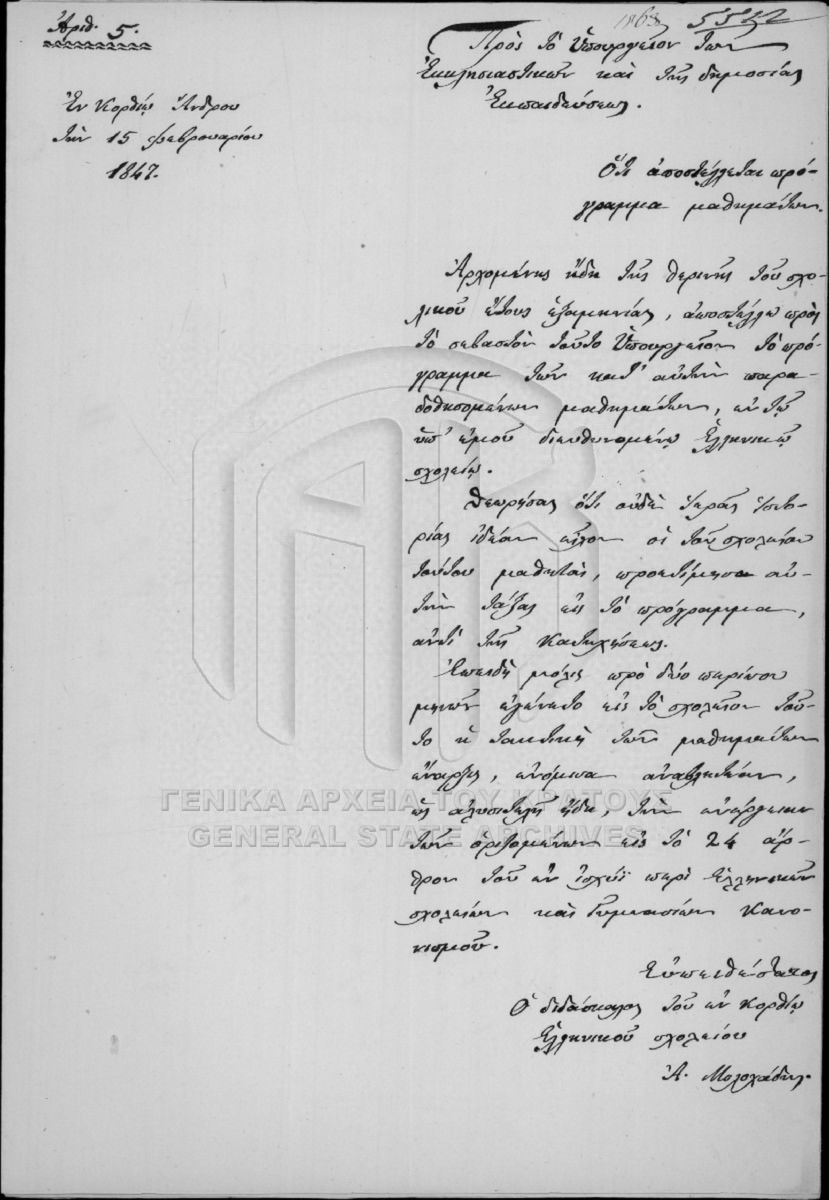 Ἀριθ. 5.
5512
Πρὸς τὸ Ὑπουργεῖον τῶν
Ἐκκλησιαστικῶν καὶ τῆς δημοσίας
Ἐκπαιδεύσεως.
Ἐν Κορθίῳ Ἄνδρου
τὴν 15 Φεβρουαρίου
1847.
Ὅτι ἀποστέλλεται πρό-
γραμμα μαθημάτων.
Ἀρχομένης ἤδη τῆς θερινῆς τοῦ σχο-
λικοῦ ἔτους ἑξαμηνίας, ἀποστέλλω πρὸς
τὸ σεβαστὸν τοῦτο Ὑπουργεῖον τὸ πρό-
γραμμα τῶν κατ' αὐτὴν παρα-
δοθησομένων μαθημάτων, ἐν τῷ
ὑπ' ἐμοῦ διευθυνομένῳ Ἑλληνικῷ
σχολείῳ.
Θεωρήσας ὅτι οὐδὲ Ἱερᾶς Ἱστο-
ρίας ἰδέαν εἶχον οἱ τοῦ σχολείου
τούτου μαθηταὶ, προετίμησα αὐ-
τὴν τάξας εἰς τὸ πρόγραμμα,
ἀντὶ τῆς Κατηχήσεως.
Ἐπειδὴ μόλις πρὸ δύο περίπου
μηνῶν ἐγένετο εἰς τὸ σχολεῖον τοῦ-
το ἡ τακτικὴ τῶν μαθημάτων
ἔναρξις, ἐνόμισα ἀναβλητέαν,
ὡς ἀλυσιτελῆ ἤδη, τὴν ἐνέργειαν
τῶν ὁριζομένων εἰς τὸ 24 ἄρ-
θρον τοῦ ἐν ἰσχύϊ περὶ Ἑλληνικῶν
σχολείων καὶ Γυμνασίων Κανο-
νισμοῦ.
Εὐπειθέστατος
Ὁ διδάσκαλος τοῦ ἐν Κορθίῳ
Ἑλληνικοῦ σχολείου
Ἀ. Μολοχάδης.
ΓΕΝΙΚΑ ΑΡΧΕΙΑ ΤΟΥ ΚΡΑΤΟΥΣ
GENERAL STATE ARCHIVES